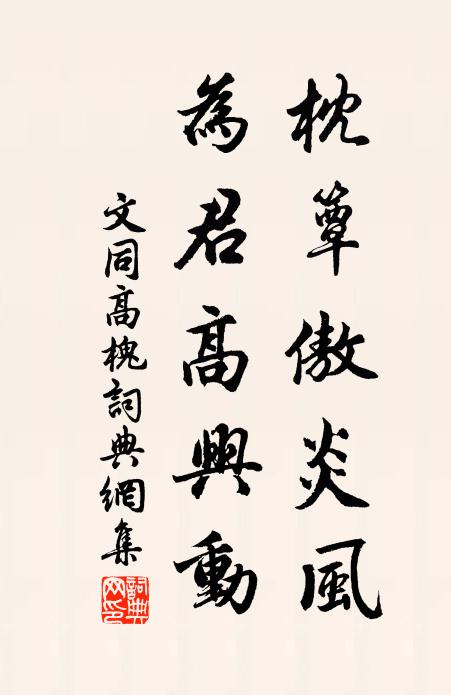 枕簟傲炎風
為君高興動
文同高槐詞典網集
詞典
网印